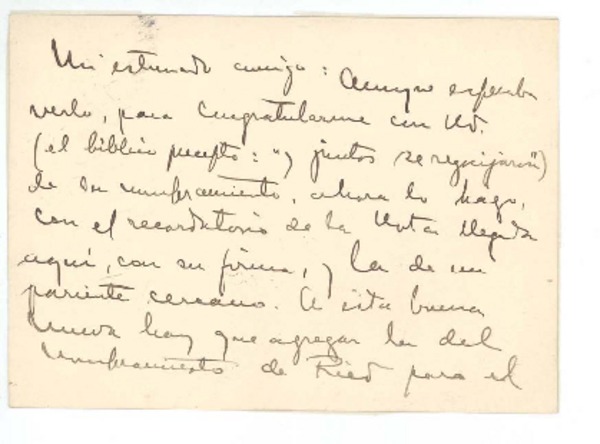 Mi estimado amigo: Aunque esperaba
verlo, para congratularme con Ud.
(el bíblico precepto: "y juntos se regocijaron")
de su nombramiento, ahora lo hago,
con el recordatorio de la Nota llegada
aquí, con su firma, y la de un
pariente cercano. A esta buena
nueva hay que agregar la del
nombramiento de Ried para el